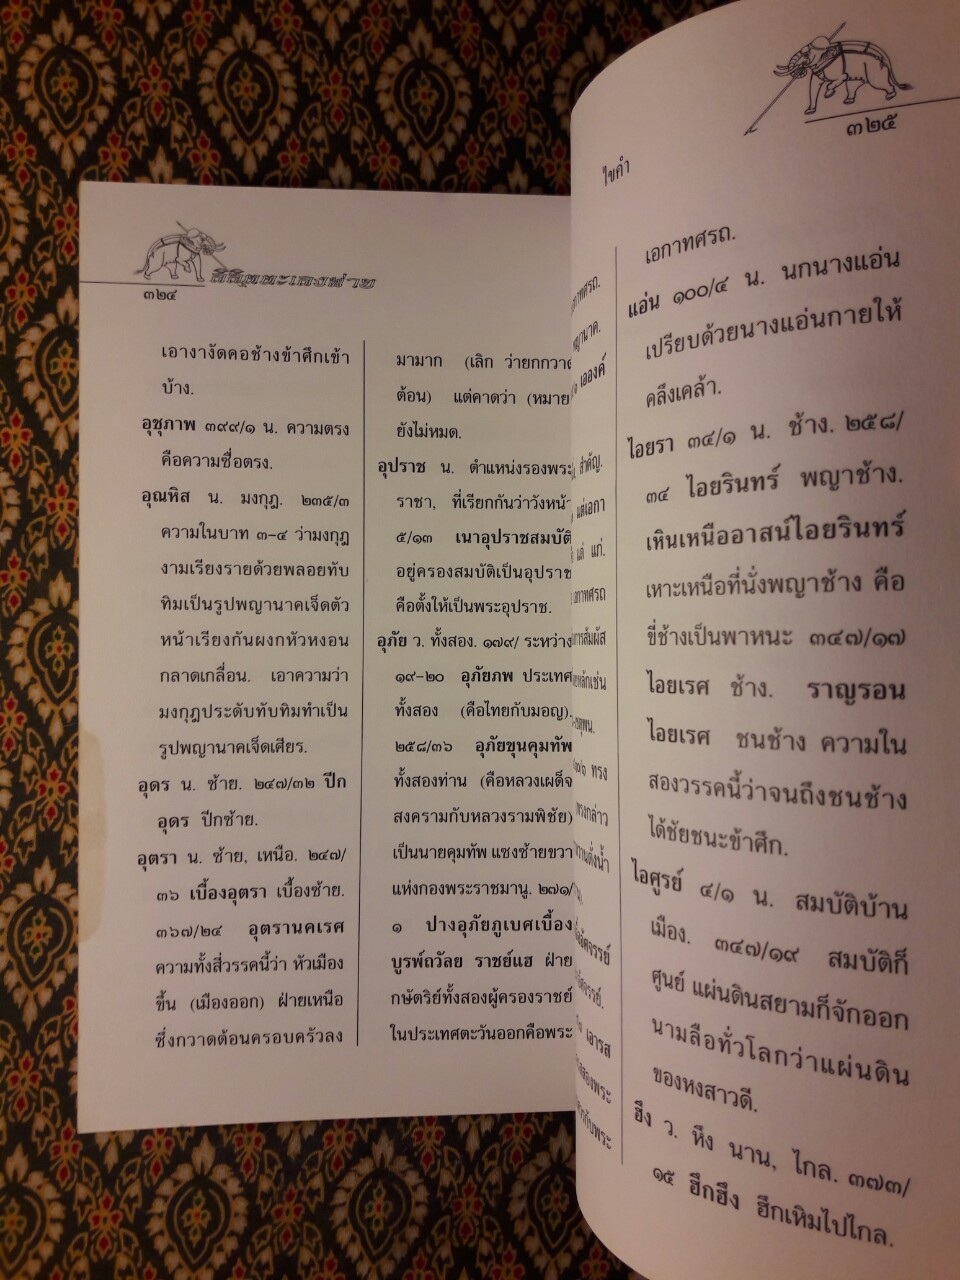 ลิลิตตะเลงพ่าย
๓๒๔
เอางางัดคอช้างข้าศึกเข้า
บ้าง.
อุชุภาพ ๓๙๙/๑ น. ความตรง
คือความซื่อตรง.
อุณหิส น. มงกุฎ. ๒๓๕/๓
ความในบาท ๓-๔ ว่ามงกุฎ
งามเรียงรายด้วยพลอยทับ
ทิมเป็นรูปพญานาคเจ็ดตัว
หน้าเรียงกันผงกหัวหงอน
กลาดเกลื่อน. เอาความว่า
มงกุฎประดับทับทิมทำเป็น
รูปพญานาคเจ็ดเศียร.
อุดร น. ซ้าย. ๒๔๗/๓๒ ปีก
อุดร ปีกซ้าย.
อุตรา น. ซ้าย, เหนือ. ๒๔๗/
๓๖ เบื้องอุตรา เบื้องซ้าย.
๓๖๗/๒๔ อุตรานคเรศ
ความทั้งสี่วรรคนี้ว่า หัวเมือง
ขึ้น (เมืองออก) ฝ่ายเหนือ
ซึ่งกวาดต้อนครอบครัวลง
มามาก (เลิก ว่ายกกวาด
ต้อน) แต่คาดว่า (หมาย
ยังไม่หมด.
อุปราช น. ตำแหน่งรองพระ
ราชา, ที่เรียกกันว่าวังหน้า
๕/๑๓ เนาอุปราชสมบัติ
อยู่ครองสมบัติเป็นอุปราช
คือตั้งให้เป็นพระอุปราช.
อุภัย ว. ทั้งสอง. ๑๗๙/ ระหว่าง
๑๙-๒๐ อุภัยภพ ประเทศ
ทั้งสอง (คือไทยกับมอญ).
๒๕๘/๓๖ อุภัยขุนคุมทัพ
ทั้งสองท่าน (คือหลวงเผด็จ
สงครามกับหลวงรามพิชัย)
เป็นนายคุมทัพ แซงซ้ายขวา
แห่งกองพระราชมานู. ๒๗๑/
๑ ปางอุภัยภูเบศเบื้อง
บูรพ์ถวัลย ราชย์แฮ ฝ่าย
กษัตริย์ทั้งสองผู้ครองราชย์
ในประเทศตะวันออกคือพระ
๓๒๕
ไขคำ
เอองค์
สำคัญ.
แต่เอกา
แต่ แก่.
การสัมผัส
ทรง
เอารส
เอกาทศรถ.
แอ่น ๑๐๐/๔ น. นกนางแอ่น
เปรียบด้วยนางแอ่นกายให้
คลึงเคล้า.
ไอยรา ๓๔/๑ น. ช้าง. ๒๕๘/
๓๔ ไอยรินทร์ พญาช้าง.
เหินเหนืออาสน์ไอยรินทร์
เหาะเหนือที่นั่งพญาช้าง คือ
ขี่ช้างเป็นพาหนะ ๓๔๗/๑๗
ไอยเรศ ช้าง. ราญรอน
ไอยเรศ ชนช้าง ความใน
สองวรรคนี้ว่าจนถึงชนช้าง
ได้ชัยชนะข้าศึก.
ไอศูรย์ ๔/๑ น. สมบัติบ้าน
เมือง. ๓๔๗/๑๙ สมบัติก็
ศูนย์ แผ่นดินสยามก็จักออก
นามลือทั่วโลกว่าแผ่นดิน
ของหงสาวดี.
ฮึง ว. หึง นาน, ไกล. ๓๗๓/
๑๕ ฮึกฮึง ฮึกเหิมไปไกล.